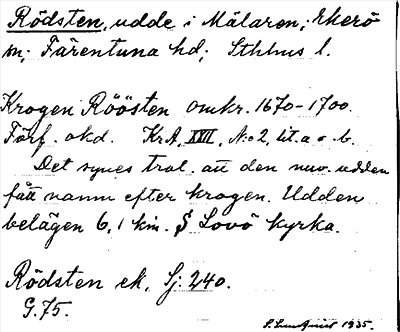 Rödsten, udde i Mälaren; Ekerö
sn; Färentuna hd; Sthlms l.
Krogen Röösten omkr. 1670-1700.
Förf. okd. KrA, XVII, N:o 2, lit. a o. b.
Det synes trol. att den nuv. udden
fått namn efter krogen. Udden
belägen 6,1 km. S Lovö kyrka.
Rödsten ek. Sj: 240.
G. 75.
1935.